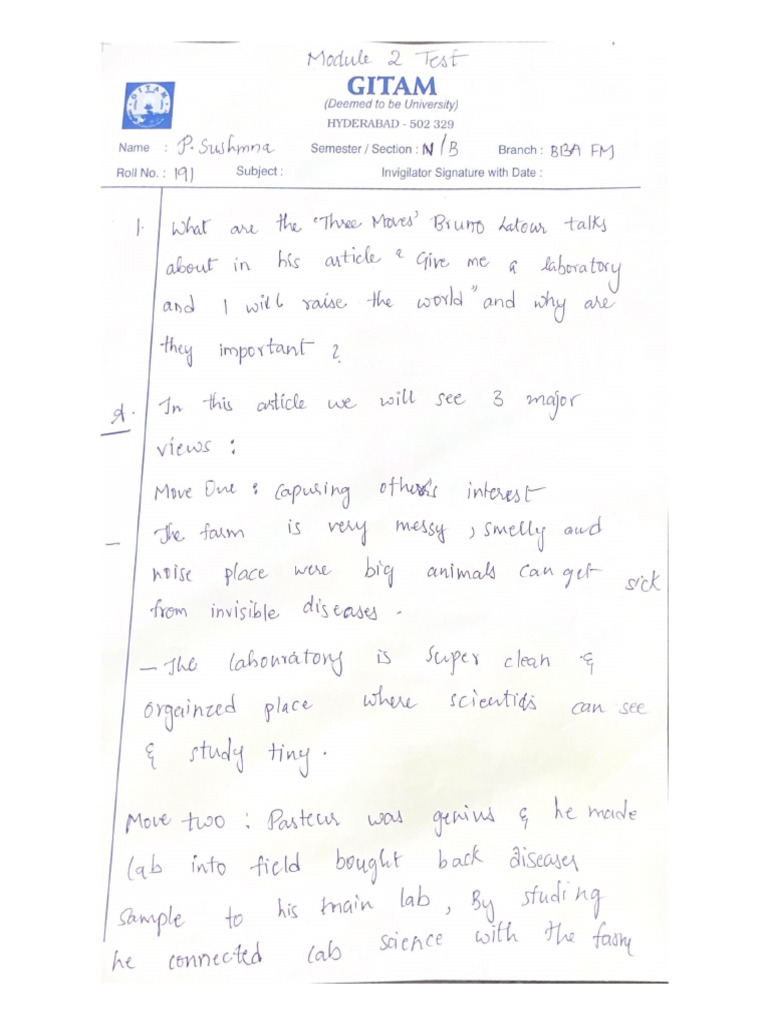 Module 2 Test
GITAM
(Deemed to be University)
HYDERABAD - 502 329
Name : P. Sushmna Semester / Section : N/B Branch : BBA FM
Roll No. : 191 Subject : Invigilator Signature with Date :
1. What are the 'Three Moves' Bruno Latour talks
about in his article "Give me a laboratory
and I will raise the world" and why are
they important ?
A. In this article we will see 3 major
views :
Move One : Capuring others interest
- The farm is very messy, smelly and
noise place were big animals can get sick
from invisible diseases.
- The labouratory is super clean &
orgainzed place where scientists can see
& study tiny.
Move two : Pasteur was genius & he made
lab into field bought back diseases
sample to his main lab, By studing
he connected lab science with the farm